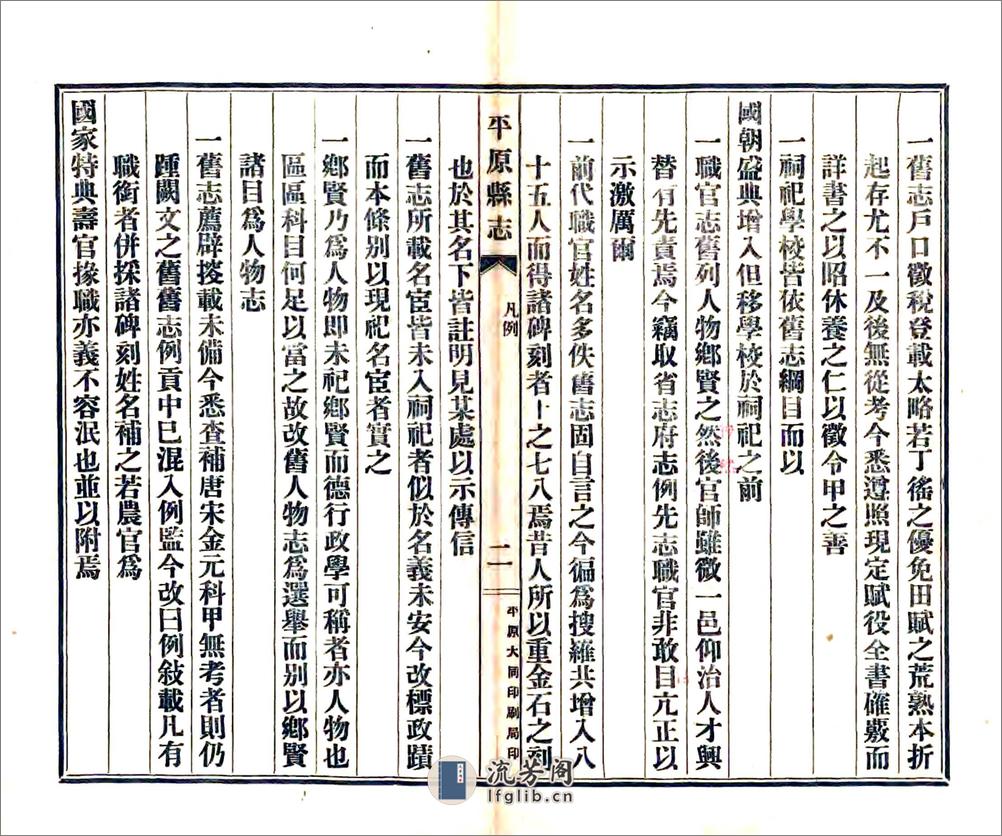 一舊志戶口徵稅登載太略若丁徭之優免田賦之荒熟本折
起存尤不一及後無從考今悉遵照現定賦役全書確覈而
詳書之以昭休養之仁以徵令甲之善
一祠祀學校皆依舊志綱目而以
國朝盛典增入但移學校於祠祀之前
一職官志舊列人物鄉賢之然後官師雖微一邑仰治人才興
替有先責焉今竊取省志府志例先志職官非敢目亢正以
示激厲爾
一前代職官姓名多佚舊志固自言之今徧爲搜羅共增入八
十五人而得諸碑刻者十之七八焉昔人所以重金石之刻
平原縣志
凡例
二
平原大同印刷局印
也於其名下皆註明見某處以示傳信
一舊志所載名宦皆未入祠祀者似於名義未安今改標政蹟
而本條别以現祀名宦者實之
一鄉賢乃爲人物即未祀鄉賢而德行政學可稱者亦人物也
區區科目何足以當之故改舊人物志爲選舉而别以鄉賢
諸目爲人物志
一舊志薦辟掇載未備今悉查補唐宋金元科甲無考者則仍
踵闕文之舊舊志例貢中巳混入例監今改曰例敍載凡有
職銜者併採諸碑刻姓名補之若農官爲
國家特典壽官掾職亦義不容泯也並以附焉
流芳阁
lfglib.cn